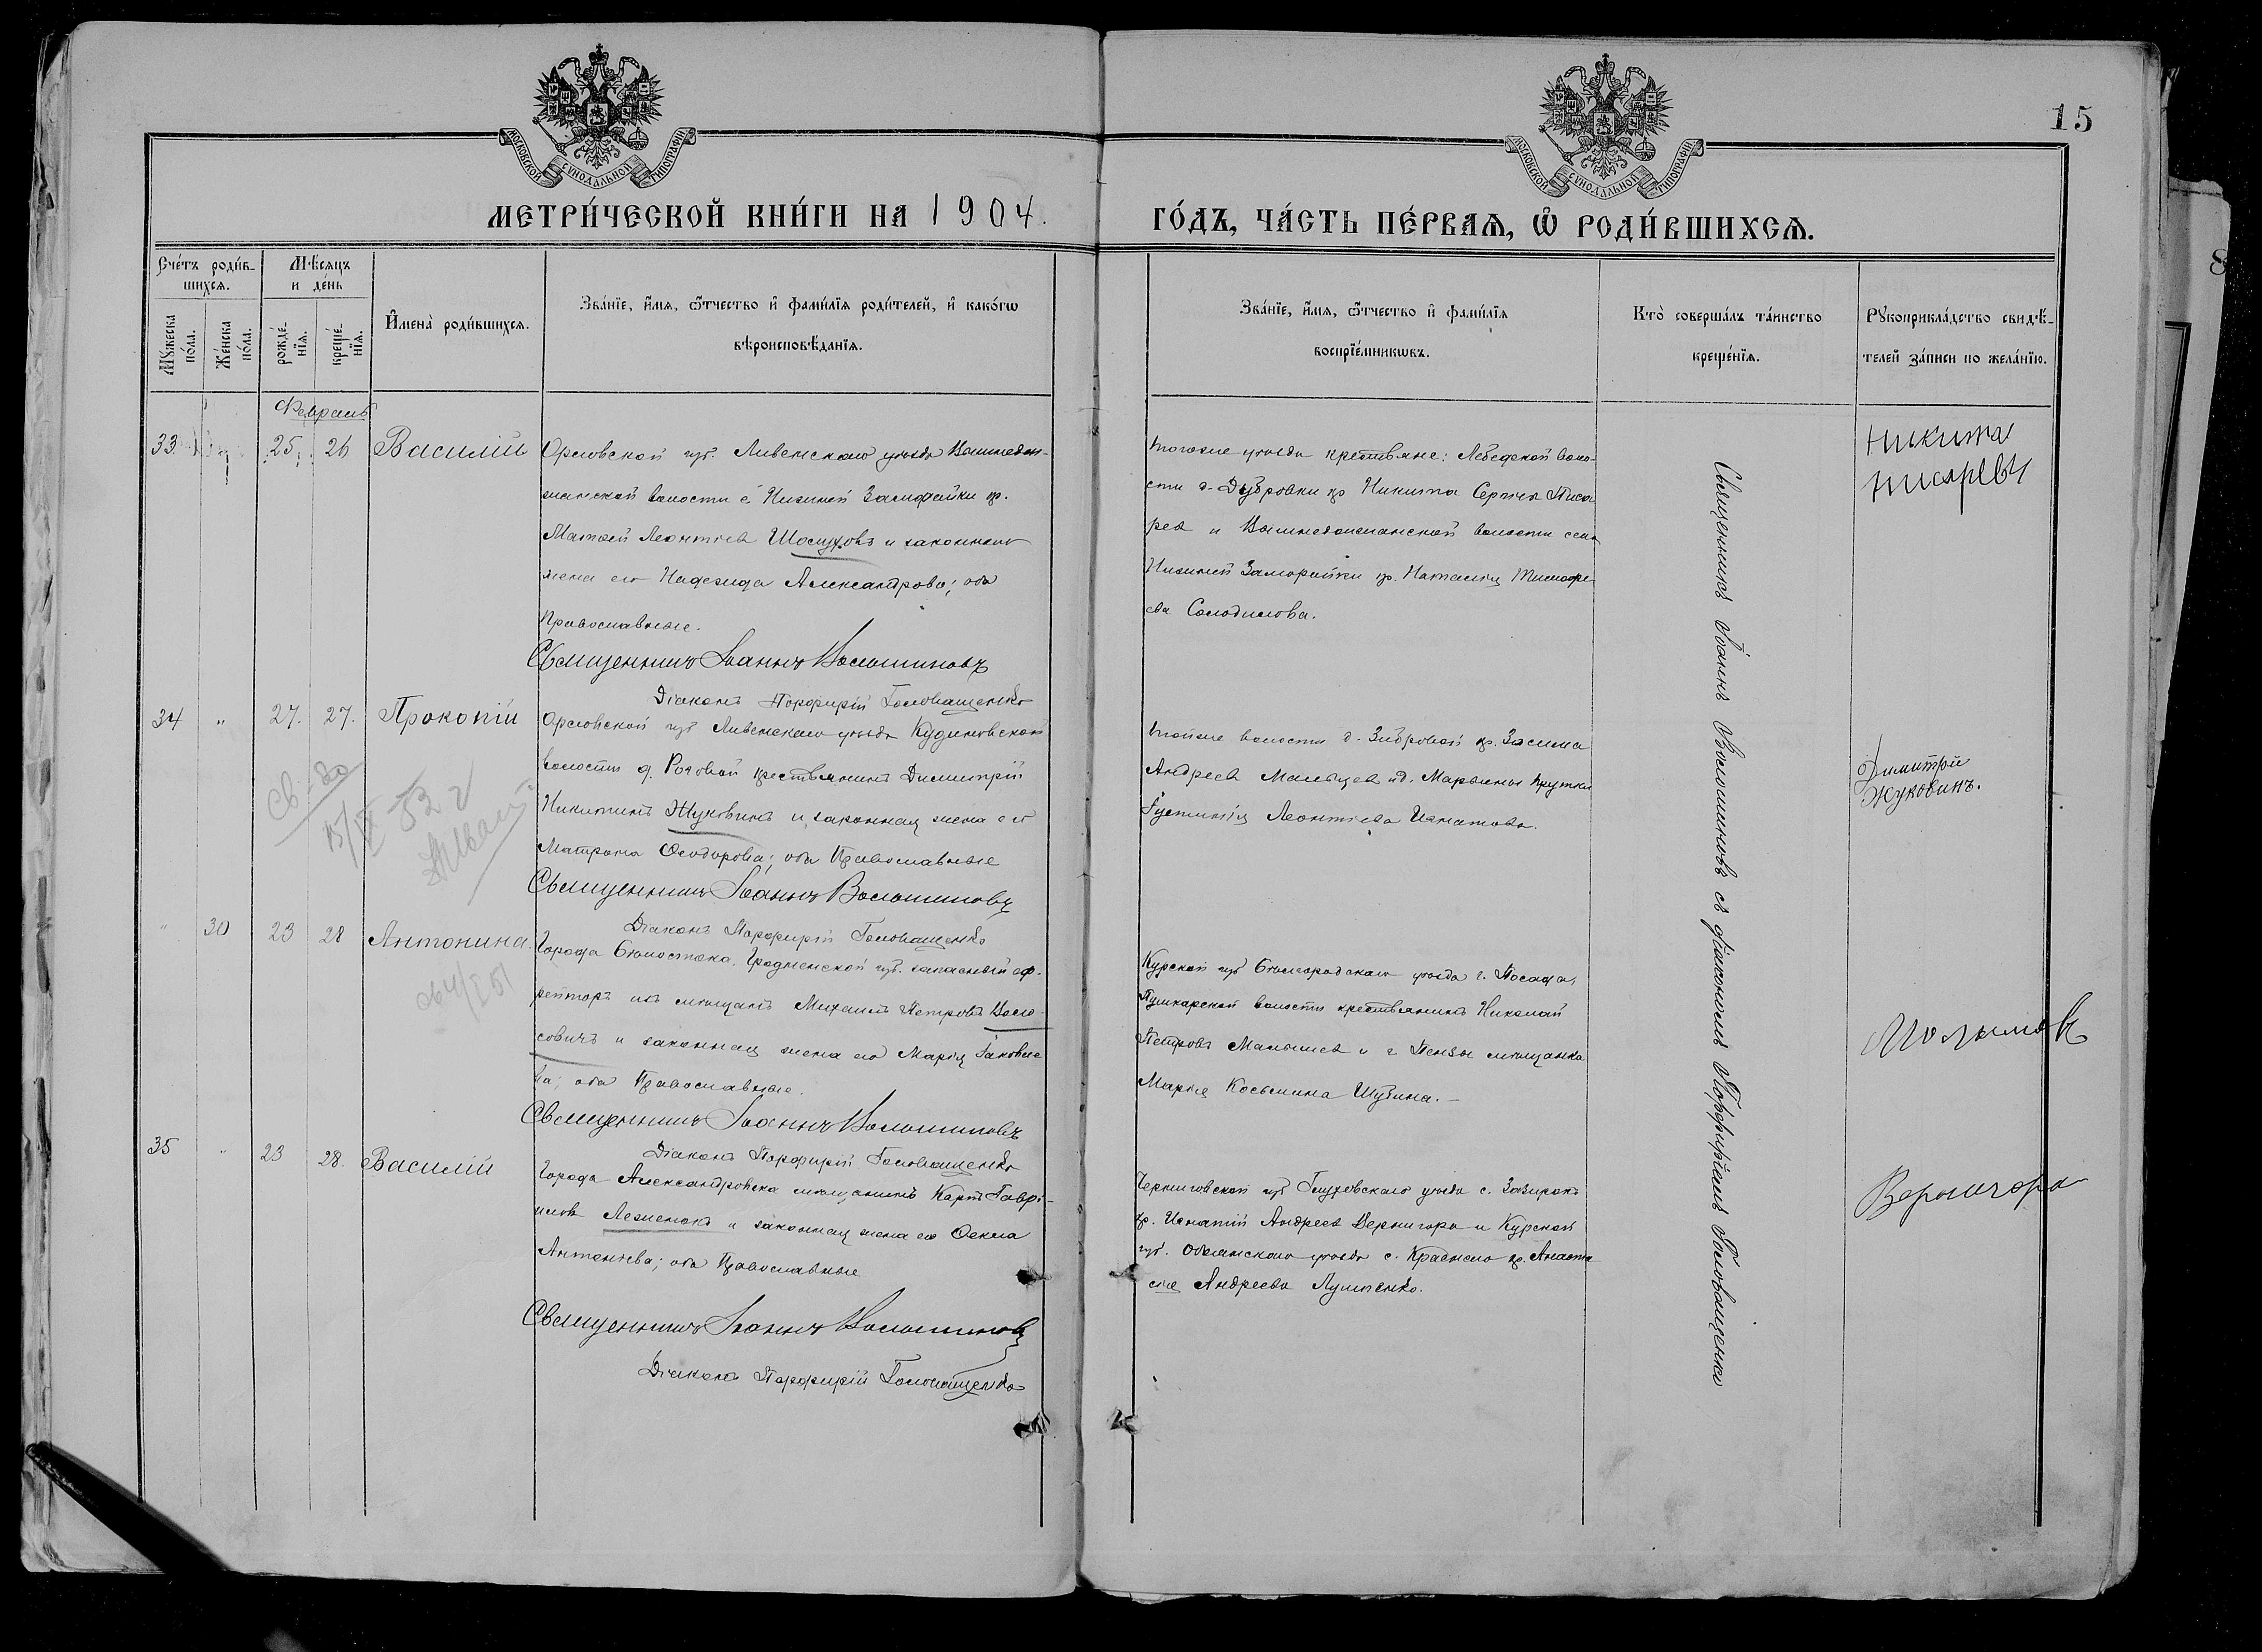 15
МОСКОВСКОЙ СѴНОДАЛЬНОЙ ТИПОГРАФІИ
МОСКОВСКОЙ СѴНОДАЛЬНОЙ ТИПОГРАФІИ
МЕТРИ́ЧЕСКОЙ КНИ́ГИ НА 1904.
ГО́ДЪ, ЧА́СТЬ ПЕ́РВАѦ, Ѽ РОДИ́ВШИХСѦ.
Сче́тъ роди́в-
шихсѧ.
Мꙋ́жеска по́ла.
Же́нска по́ла.
Мѣ́сѧцъ
и де́нь
рожде́-
нїѧ.
креще́-
нїѧ.
И҆мена̀ роди́вшихсѧ.
Зва́нїе, и҆́мѧ, ѻ҆́тчество и҆ фамѝлїѧ роди́телей, и҆ како́гѡ
вѣроисповѣ́данїѧ.
Зва́нїе, и҆́мѧ, ѻ҆́тчество и҆ фами́лїѧ
воспрїе́мникѡвъ.
Кто̀ соверша́лъ та́инство
креще́нїѧ.
Рꙋкоприкла́дство свидѣ́-
телей за́писи по жела́нїю.
Февраль
33 25 26 Василій
Орловской губ. Ливенскаго уѣзда Вышнедол-
жанской волости с. Нижней Замарайки кр.
Матвей Леонтіев и законная
жена его Надежда Александрова; оба
Православные.
Священникъ Іоаннъ Волошиновъ
Діаконъ Порфирій Головащенко
тогоже уѣзда крестьяне: Лебедской воло-
сти д. Дубровки кр Никита Сергѣев Писа
рев и Вышнедолжанской волости села
Нижней Замарайки кр. Наталія Тимофе-
ева Солодилова.
Никита
Писаревъ
34 " 27. 27. Прокопій
Орловской губ Ливенскаго уѣзда Кудиновской
волости д. Роговой крестьянинъ Димитрій
Никитинъ Жуковинъ и законная жена его
Матрона Ѳеодорова; оба Православные
Священникъ Іоаннъ Волошиновъ
Діаконъ Порфирій Головащенко
тойже волости д. Зибровой кр. Зосима
Андреев Мальцев и д. Марьины Крутки
Іустинія Леонтіева Игнатова.
Димитрій
Жуковинъ.
" 30 23 28 Антонина.
Города Бѣлостока, Гродненской губ. запасный еф-
рейторъ изъ мѣщанъ Михаилъ Петровъ
совичъ и законная жена его Марія Іаковле
ва; оба Православные.
Священникъ Іоаннъ Волошиновъ
Діаконъ Порфирій Головащенко
Курской губ Бѣлгородскаго уѣзда г. Посада,
Пушкарской волости крестьянинъ Николай
Петровъ Малышев и г Пензы мѣщанка
Марія Косьмина Шубина. –
35 " 23 28. Василій
Города Александровска мѣщанинъ Карпъ Гаврі-
иловъ и законная жена его Ѳекла
Антоніева; оба Православные
Священникъ Іоаннъ Волошиновъ
Діаконъ Порфирій Головащенко
Черниговской губ Глуховскаго уѣзда с.
кр. Игнатій Андреев Вернигора и Курской
губ. Обоянскаго уѣзда с. Краснаго кр. Анаста
сія Андреева Луценко.
Вернигора
Священникъ Іоаннъ Волошиновъ съ діакономъ Порфиріемъ Головащенко